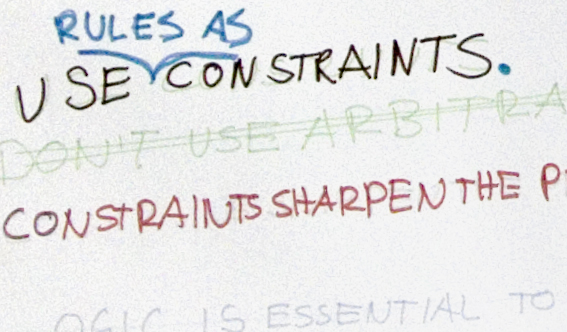 RULES AS
USE CONSTRAINTS.
DON'T USE
CONSTRAINTS SHARPEN THE
IS ESSENTIAL TO